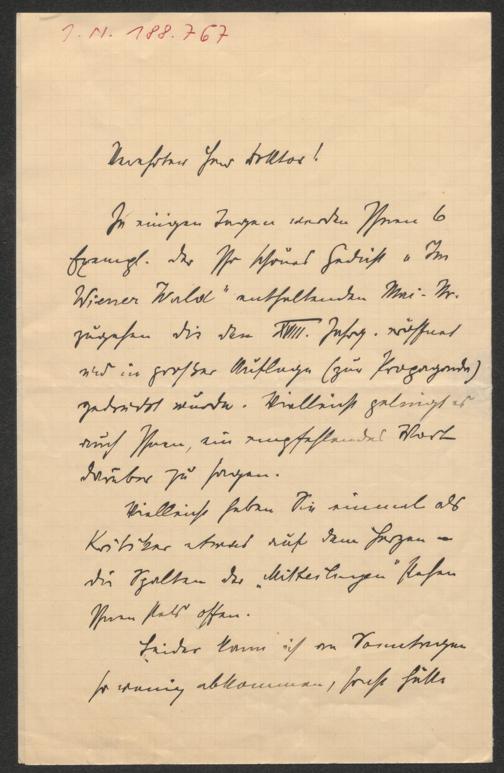 J. N. 188.767
Verehrter Herr Doktor!
In einigen Tagen werden Ihnen 6
Exempl. der Ihr schönes Gedicht „Im
Wiener Wald" enthaltenden Mai-Nr.
zugehen die den XVIII. Jahrg. eröffnet
und in großer Auflage (zur Propaganda)
gedruckt wurde. Vielleicht gelingt es
auch Ihnen, ein empfehlendes Wort
darüber zu sagen.
Vielleicht haben Sie einmal als
Kritiker etwas auf dem Herzen –
die Spalten der „Mitteilungen" stehen
Ihnen stets offen.
Leider kann ich an Sonntagen
so wenig abkommen, sonst hätte